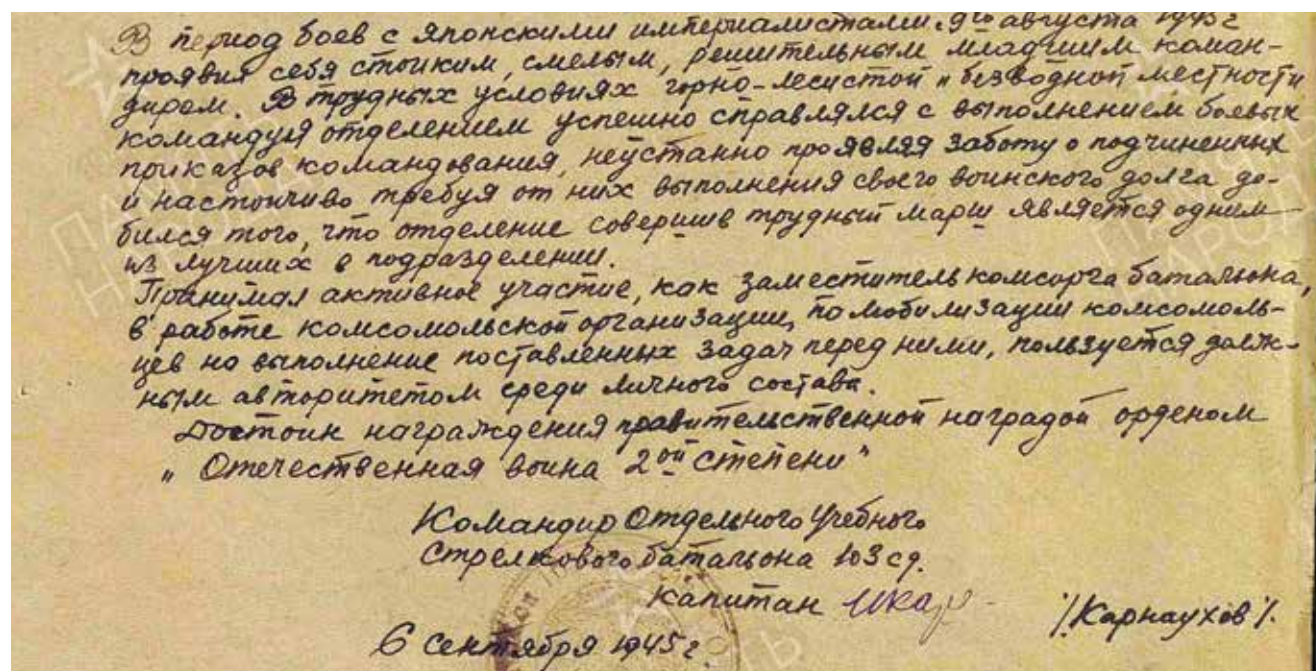 В период боев с японскими империалистами. 9го августа 1945г
проявил себя стойким, смелым, решительным младшим коман-
диром. В трудных условиях горно-лесистой и безводной местности
командуя отделением успешно справлялся с выполнением боевых
приказов командования, неустанно проявляя заботу о подчиненных
и настойчиво требуя от них выполнения своего воинского долга до-
бился того, что отделение совершив трудный марш является одним
из лучших в подразделении.
Принимал активное участие, как заместитель комсорга батальона,
в работе комсомольской организации, по мобилизации комсомоль-
цев на выполнение поставленных задач перед ними, пользуется долж-
ным авторитетом среди личного состава.
Достоин награждения правительственной наградой орденом
„Отечественная война 2ой степени"
Командир Отдельного Учебного
Стрелкового батальона 103 сд.
капитан /Карнаухов/.
6 сентября 1945г.